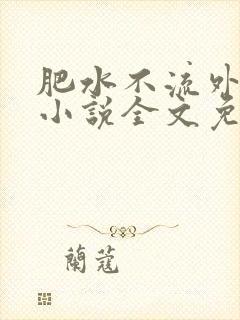 肥水不流外
小說全文免
蘭蔻